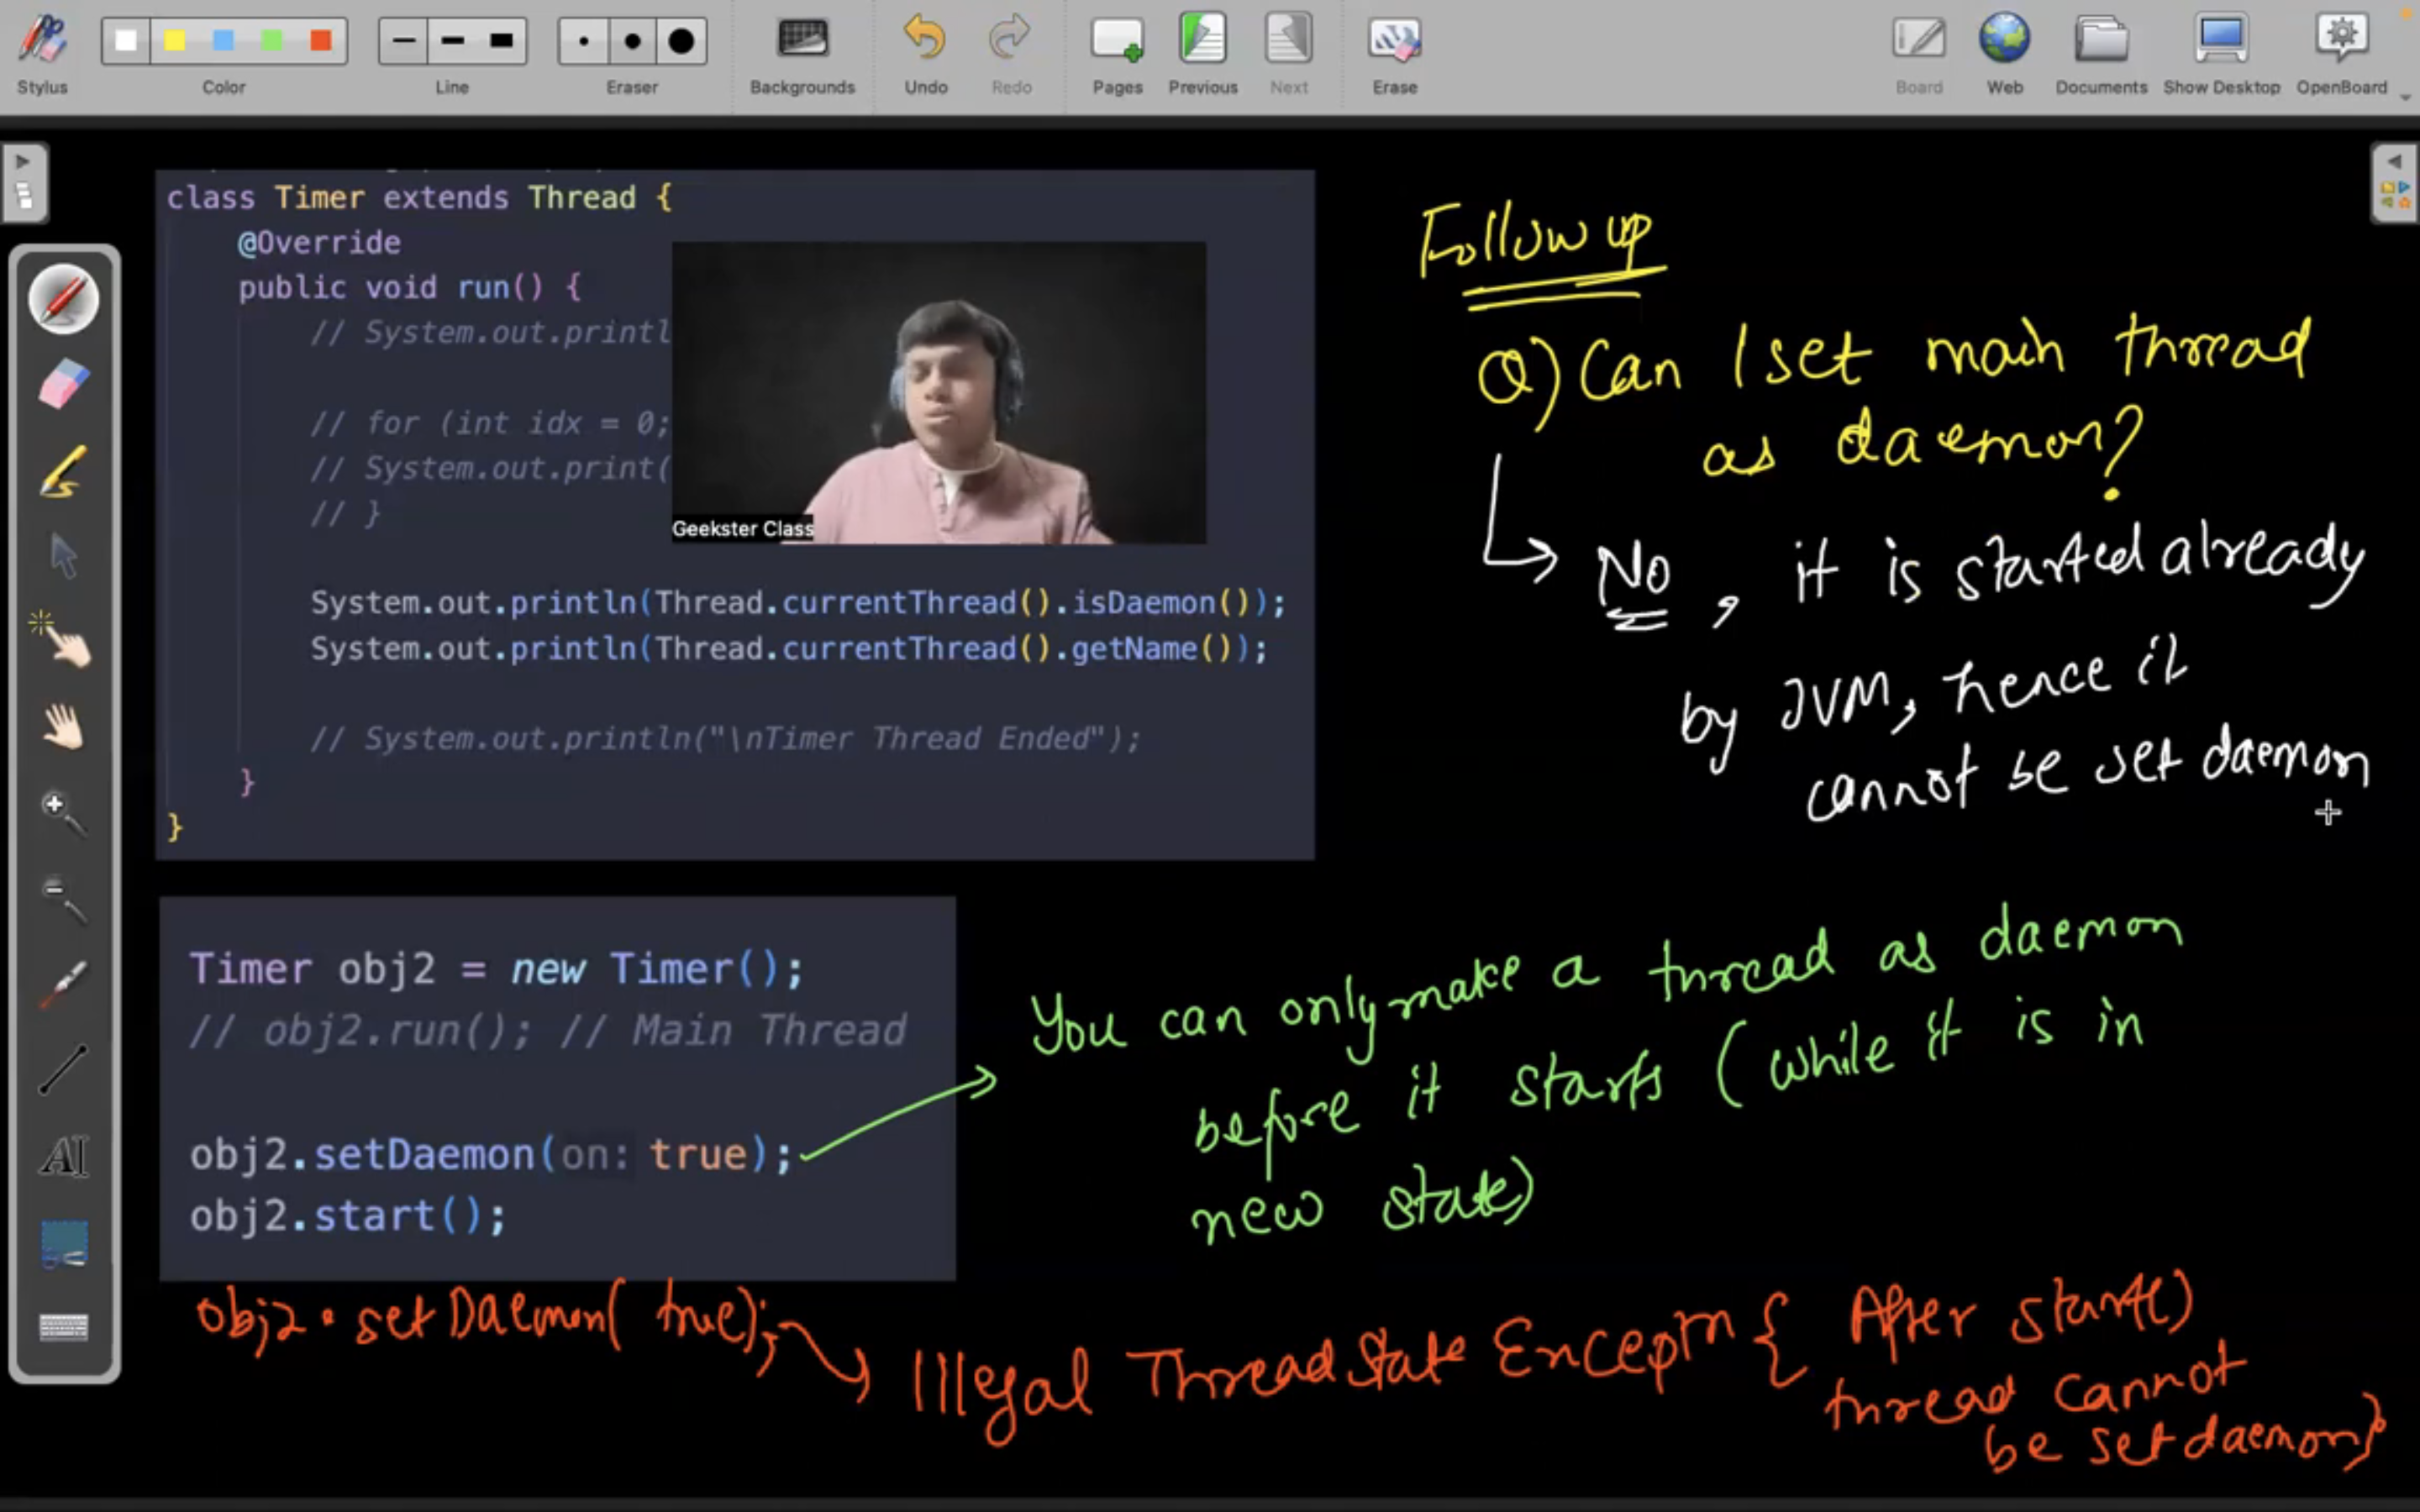 Stylus
Color
Line
Eraser
Backgrounds
Undo
Redo
Pages
Previous
Next
Erase
Board
Web
Documents
Show Desktop
OpenBoard
class Timer extends Thread {
@Override
public void run() {
// System.out.printl
// for (int idx = 0;
// System.out.print(
// }
Geekster Class
System.out.println(Thread.currentThread().isDaemon());
System.out.println(Thread.currentThread().getName());
// System.out.println("\nTimer Thread Ended");
}
}
Follow up
Q) Can I set main thread
as daemon?
No, it is started already
by JVM, hence it
cannot be set daemon
Timer obj2 = new Timer();
// obj2.run(); // Main Thread
obj2.setDaemon(on: true);
obj2.start();
You can only make a thread as daemon
before it starts (while it is in
new state)
obj2.setDaemon(true);
Illegal Thread State Exceptn { After start()
thread cannot
be set daemon}
AI